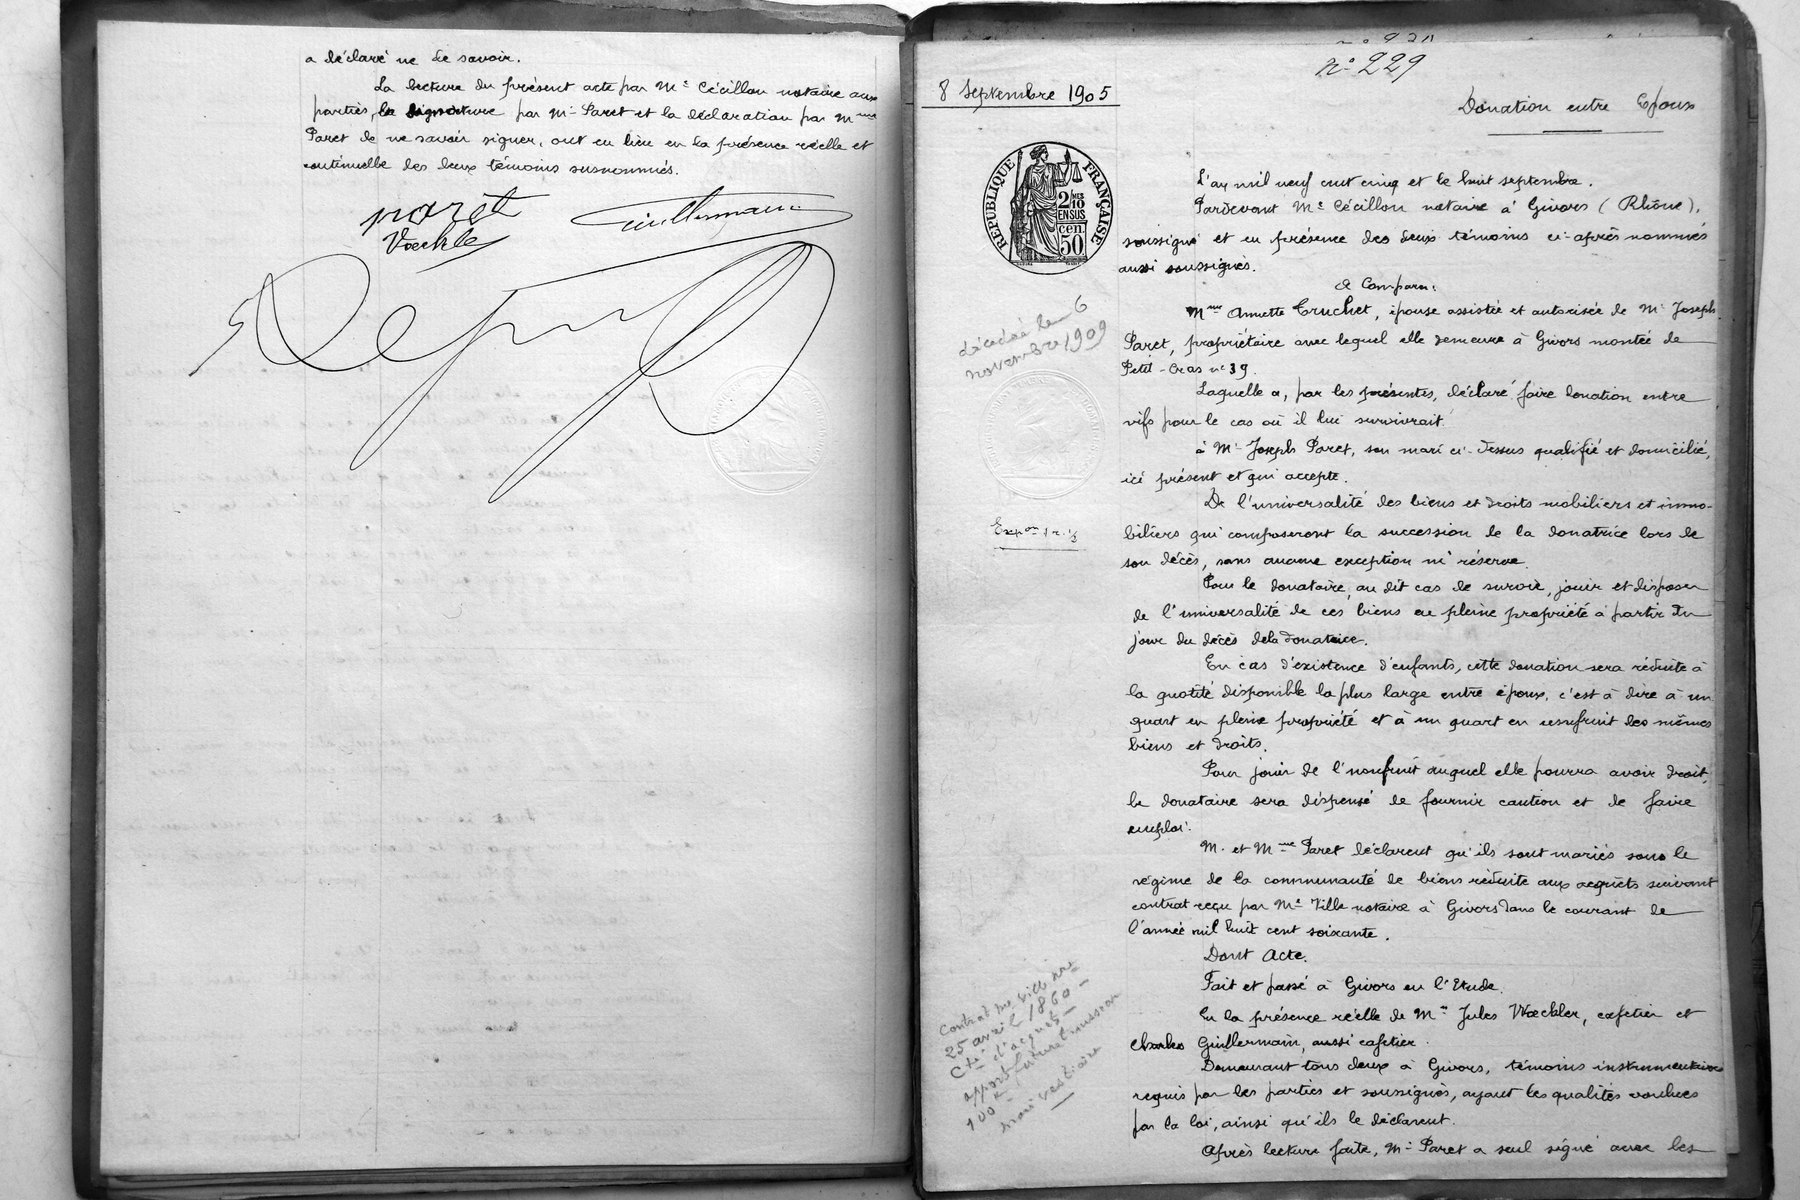 a déclaré ne le savoir.
La lecture du présent acte par Me Cécillon notaire aux
parties, la signature par Mr Paret et la déclaration par Mme
Paret de ne savoir signer, ont eu lieu en la présence réelle et
continuelle des deux témoins susnommés.
paret
Guillermain
Vœckler
nº 229
8 Septembre 1905
Donation entre Epoux
RÉPUBLIQUE FRANÇAISE
2 MES
10
EN SUS
50 cen.
L'an mil neuf cent cinq et le huit septembre.
Pardevant Me Cécillon notaire à Givors (Rhône),
soussigné et en présence des deux témoins ci-après nommés
aussi soussignés.
A Comparu:
Mme Annette Truchet, épouse assistée et autorisée de Mr Joseph
Paret, propriétaire avec lequel elle demeure à Givors montée de
Petit-Cras nº 39.
décédée le 6
novembre 1909
Laquelle a, par les présentes, déclaré faire donation entre
vifs pour le cas où il lui survivrait.
à Mr Joseph Paret, son mari ci-dessus qualifié et domicilié,
ici présent et qui accepte.
De l'universalité des biens et droits mobiliers et immo-
biliers qui composeront la succession de la donatrice lors de
son décès, sans aucune exception ni réserve.
Expon 1 r. 1/2
Pour le donataire, au dit cas de survie, jouir et disposer
de l'universalité de ces biens en pleine propriété à partir du
jour du décès de la donatrice.
En cas d'existence d'enfants, cette donation sera réduite à
la quotité disponible la plus large entre époux, c'est à dire à un
quart en pleine propriété et à un quart en usufruit des mêmes
biens et droits.
Pour jouir de l'usufruit auquel elle pourra avoir droit,
le donataire sera dispensé de fournir caution et de faire
emploi.
M. et Mme Paret déclarent qu'ils sont mariés sous le
régime de la communauté de biens réduite aux acquêts suivant
contrat reçu par Me Ville notaire à Givors dans le courant de
l'année mil huit cent soixante.
Dont Acte.
Fait et passé à Givors en l'Etude.
En la présence réelle de Mrs Jules Vœckler, cafetier et
Charles Guillermain, aussi cafetier.
Demeurant tous deux à Givors, témoins instrumentaires
requis par les parties et soussignés, ayant les qualités voulues
par la loi, ainsi qu'ils le déclarent.
Après lecture faite, Mr Paret a seul signé avec les
contrat Me Ville nre
25 avril 1860 -
Cté d'acquêts -
apport future trousseau
100
mari vestiaire